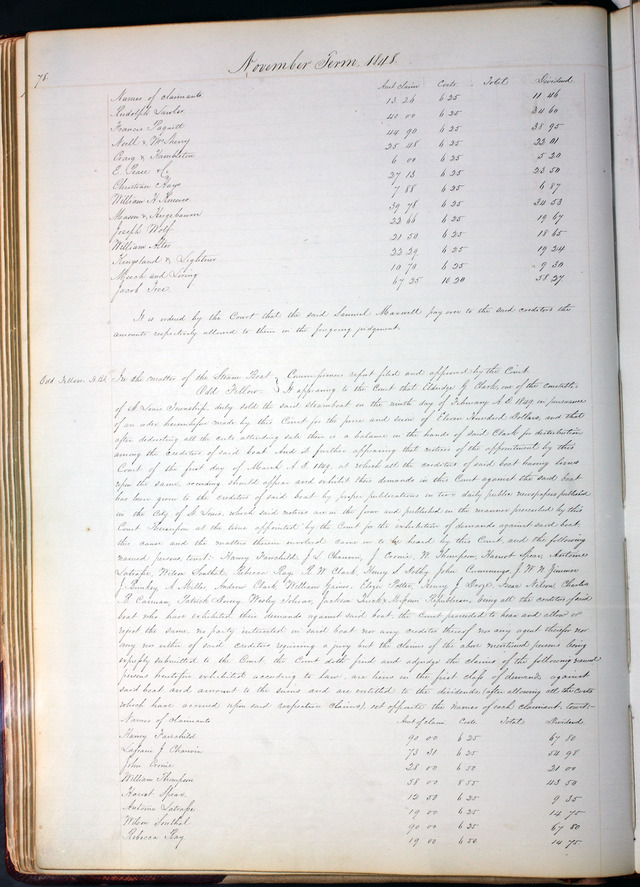 78
November Term 1848
Names of claimants Amt claim Costs Total Dividend
Rudolph Lawler 13 26 6 25 11 46
Francis 40 00 6 25 34 60
Noell & McSherry 44 90 6 25 38 95
Craig & Hambleton 25 48 6 25 22 01
E. Pease & Co 6 00 6 25 5 20
Christian Hays 27 13 6 25 23 50
William H 7 88 6 25 6 87
Mason & 39 78 6 25 34 53
Joseph Wolf 22 66 6 25 19 67
William Alter 21 50 6 25 18 65
Kingsland & Lightner 22 29 6 25 19 24
Meech and Loring 10 70 6 25 9 30
Jacob 67 25 10 20 58 27
It is ordered by the Court that the said Samuel Maxwell pay over to the said creditors the
amounts respectively allowed to them in the foregoing judgment.
Odd Fellow St Bt In the matter of the Steam Boat } Commissioners report filed and approved by the Court
Odd Fellow } It appearing to the Court that Eldridge G Clark, one of the constables
of St Louis Township duly sold the said steamboat on the ninth day of February A.D. 1849 in pursuance
of an order heretofore made by this Court for the price and sum of Eleven Hundred Dollars, and that
after deducting all the costs attending sale there is a balance in the hands of said Clark for distribution
among the creditors of said boat And it further appearing that notices of the appointment by this
Court of the first day of March A D 1849, at which all the creditors of said boat having liens
upon the same, residing should appear and exhibit their demands in this Court against the said boat
has been given to the creditors of said boat by proper publications in two daily public newspapers published
in the City of St Louis, which said notices are in the form and published in the manner prescribed by this
Court Whereupon at the time appointed by the Court for the exhibition of demands against said boat,
this cause and the matters therein involved came on to be heard by this Court and the following
named persons, towit: Henry Fairchild, J L Chauvin, J Cronie, W Thompson, Harriot Spear, Antoine
Latraße, Wilson Southal, Rebecca Ray, R W Clark, Henry S Selby, John Cummings, J W N
J Bunkey, A Miller, Andrew Clark, William Gaines, Eloys Potter, Henry J Doyd, Isaac Nelson, Charles
R Carman, Patrick Gorey, Wesley Toliver, Jackson Republican, being all the creditors of said
boat who have exhibited their demands against said boat, the Court proceeded to hear and allow or
reject the same, no party interested in said boat nor any creditor thereof nor any agent therefor nor
any nor either of said creditors requiring a jury but the claims of the above mentioned persons being
expressly submitted to the Court the Court doth find and adjudge the claims of the following named
persons heretofore exhibited according to law are liens in the first class of demands against
said boat and amount to the sums and are entitled to the dividends (after allowing all the costs
which have accrued upon said respective claims), set opposite the names of each claimant, towit:
Names of claimants Amt of claim Costs Total Dividend
Henry Fairchild 90 00 6 25 67 80
Lafraim J Chauvin 73 31 6 25 54 98
John Cronie 28 00 6 50 21 00
William Thompson 58 00 8 55 43 50
Harriot Spear 12 50 6 25 9 35
Antoine Latraße 19 00 6 25 14 75
Wilson Southal 90 00 6 25 67 80
Rebecca Ray 19 00 6 50 14 75